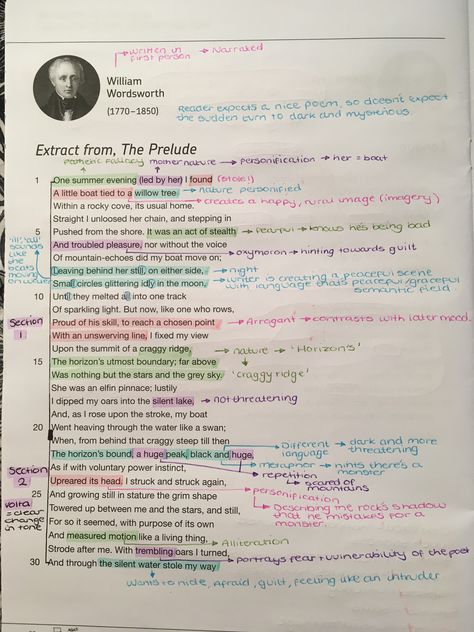 written in first person → Narrated
William
Wordsworth
(1770–1850)
Reader expects a nice poem, so doesn't expect
the sudden turn to dark and mysterious.
Extract from, The Prelude
Pathetic fallacy
mother nature → personification → her = boat
1 One summer evening (led by her) I found (stole!)
A little boat tied to a willow tree → nature personified
Within a rocky cove, its usual home. → creates a happy, rural image (imagery)
Straight I unloosed her chain, and stepping in
5 Pushed from the shore. It was an act of stealth → fearful → knows he's being bad
And troubled pleasure, nor without the voice → oxymoron → hinting towards guilt
Of mountain-echoes did my boat move on;
'ill', 'all' sounds like the boats moving on water
Leaving behind her still, on either side, → night
Small circles glittering idly in the moon, → writer is creating a peaceful scene with language thats peaceful/graceful semantic field
10 Until they melted all into one track
Of sparkling light. But now, like one who rows,
Section 1
Proud of his skill, to reach a chosen point → Arrogant → contrasts with later mood.
With an unswerving line, I fixed my view
Upon the summit of a craggy ridge, → nature → 'Horizon's'
15 The horizon's utmost boundary; far above
Was nothing but the stars and the grey sky. 'craggy ridge'
She was an elfin pinnace; lustily
I dipped my oars into the silent lake, → not threatening
And, as I rose upon the stroke, my boat
20 Went heaving through the water like a swan;
When, from behind that craggy steep till then
The horizon's bound, a huge peak, black and huge, → Different language → dark and more threatening
Section 2
As if with voluntary power instinct, → metaphor → hints there's a monster
Upreared its head. I struck and struck again, → repetition → scared of mountains
25 And growing still in stature the grim shape → personification
volta = clear change in tone
Towered up between me and the stars, and still, → Describing the rock's shadow that he mistakes for a monster.
For so it seemed, with purpose of its own
And measured motion like a living thing, → Alliteration
Strode after me. With trembling oars I turned, → portrays fear + vulnerability of the poet
30 And through the silent water stole my way
wants to hide, afraid, guilt, feeling like an intruder